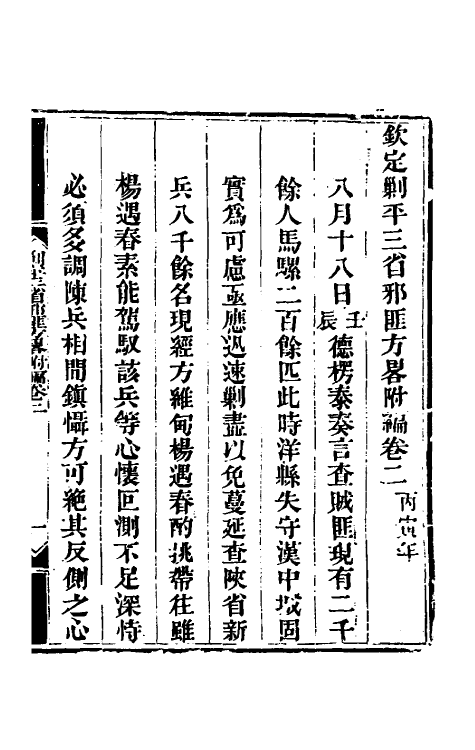 欽定剿平三省邪匪方畧附編卷二 丙寅年
八月十八日壬辰德楞泰奏言查賊匪現有二千
餘人馬騾二百餘匹此時洋縣失守漢中城固
實爲可慮亟應迅速剿盡以免蔓延查陝省新
兵八千餘名現經方維甸楊遇春酌挑帶往雖
楊遇春素能駕馭該兵等心懷叵測不足深恃
必須多調陳兵相間鎮懾方可絶其反側之心
剿平三省邪匪方畧附編卷二
一